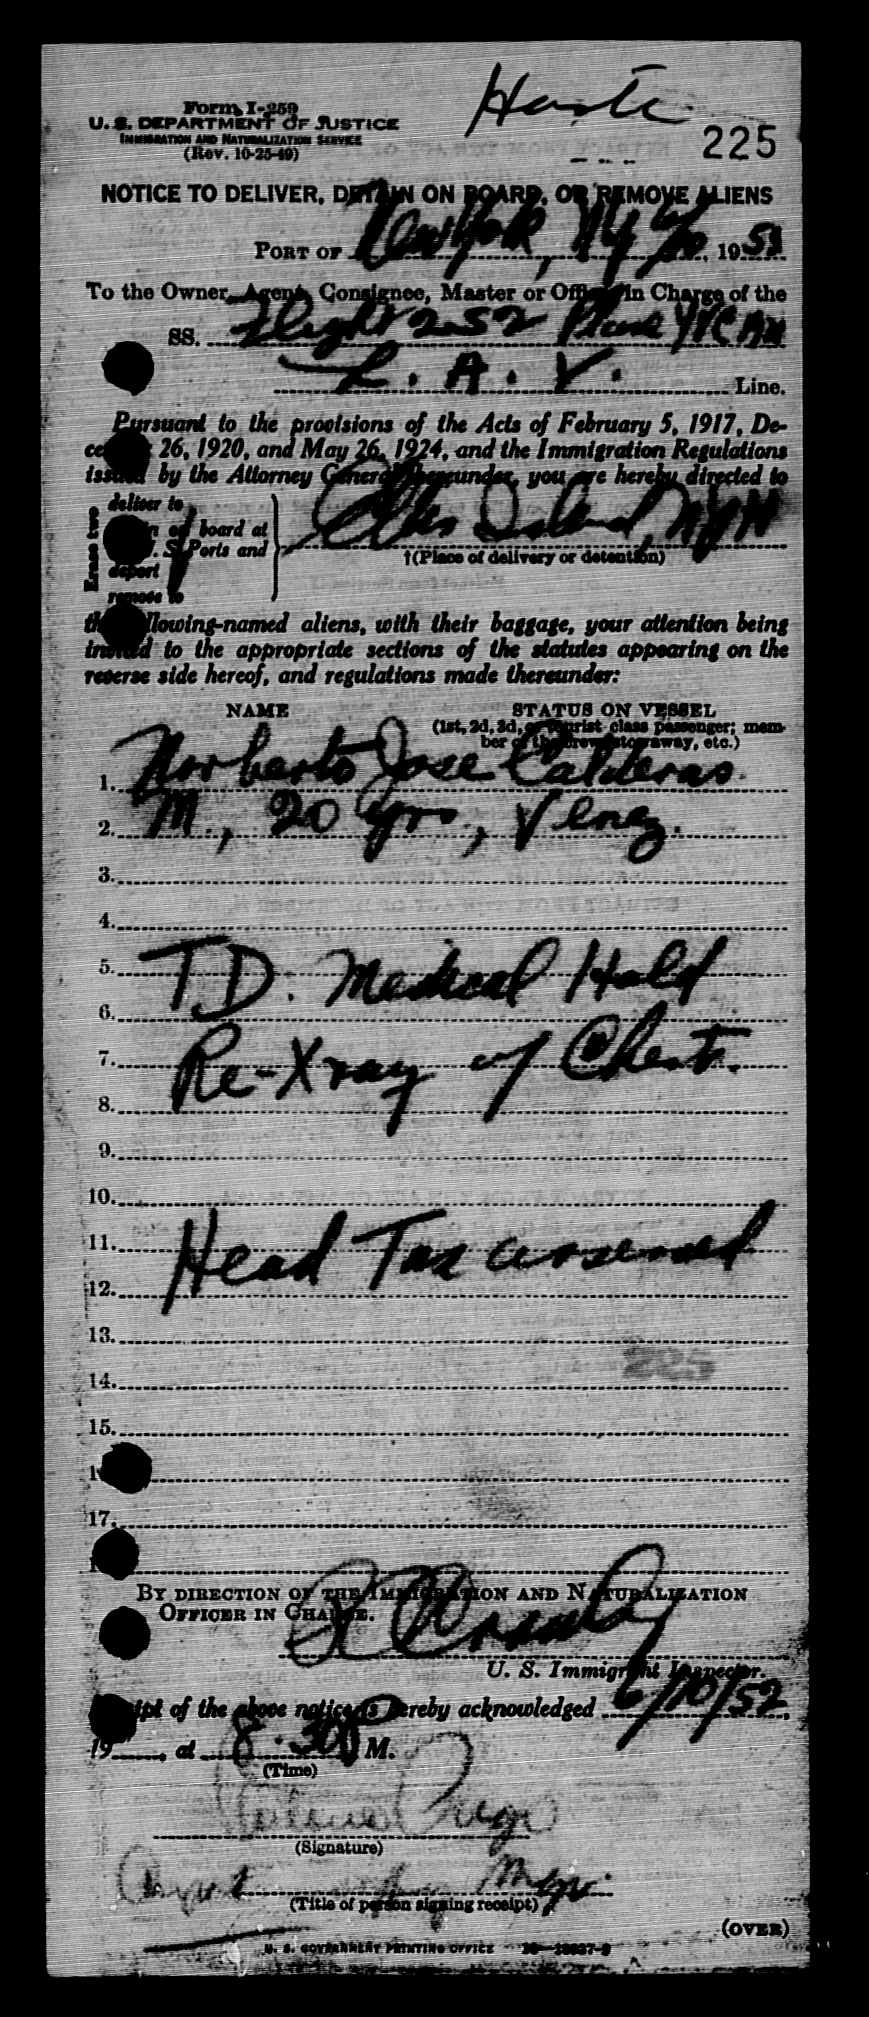 Form I-259
U. S. DEPARTMENT OF JUSTICE
IMMIGRATION AND NATURALIZATION SERVICE
(Rev. 10-25-49)
225
NOTICE TO DELIVER, DETAIN ON BOARD, OR REMOVE ALIENS
PORT OF New York, NY 6/10, 1952
To the Owner, Agent, Consignee, Master or Officer in Charge of the
SS. Flight 252 Plane YVC
L. A. V. Line.
Pursuant to the provisions of the Acts of February 5, 1917, De-
cember 26, 1920, and May 26, 1924, and the Immigration Regulations
issued by the Attorney General thereunder, you are hereby directed to
Erase two
deliver to
on board at
U. S. Ports and
deport
remove to
Ellis Island, NYH
†(Place of delivery or detention)
the following-named aliens, with their baggage, your attention being
invited to the appropriate sections of the statutes appearing on the
reverse side hereof, and regulations made thereunder:
NAME STATUS ON VESSEL
(1st, 2d, 3d, or tourist class passenger; mem-
ber of the crew, stowaway, etc.)
1. Norberto Jose Calderas
2. M., 20 yrs, Venez.
3.
4.
5. T.D. Medical Hold
6.
7. Re-Xray of Chest.
8.
9.
10.
11. Head Tax assessed
12.
13.
225
14.
15.
17.
BY DIRECTION OF THE IMMIGRATION AND NATURALIZATION
OFFICER IN CHARGE.
U. S. Immigrant Inspector.
Receipt of the above notice is hereby acknowledged 6/10/52,
19, at 8:30 P M.
(Time)
(Signature)
Mgr.
(Title of person signing receipt)
(OVER)
U. S. GOVERNMENT PRINTING OFFICE